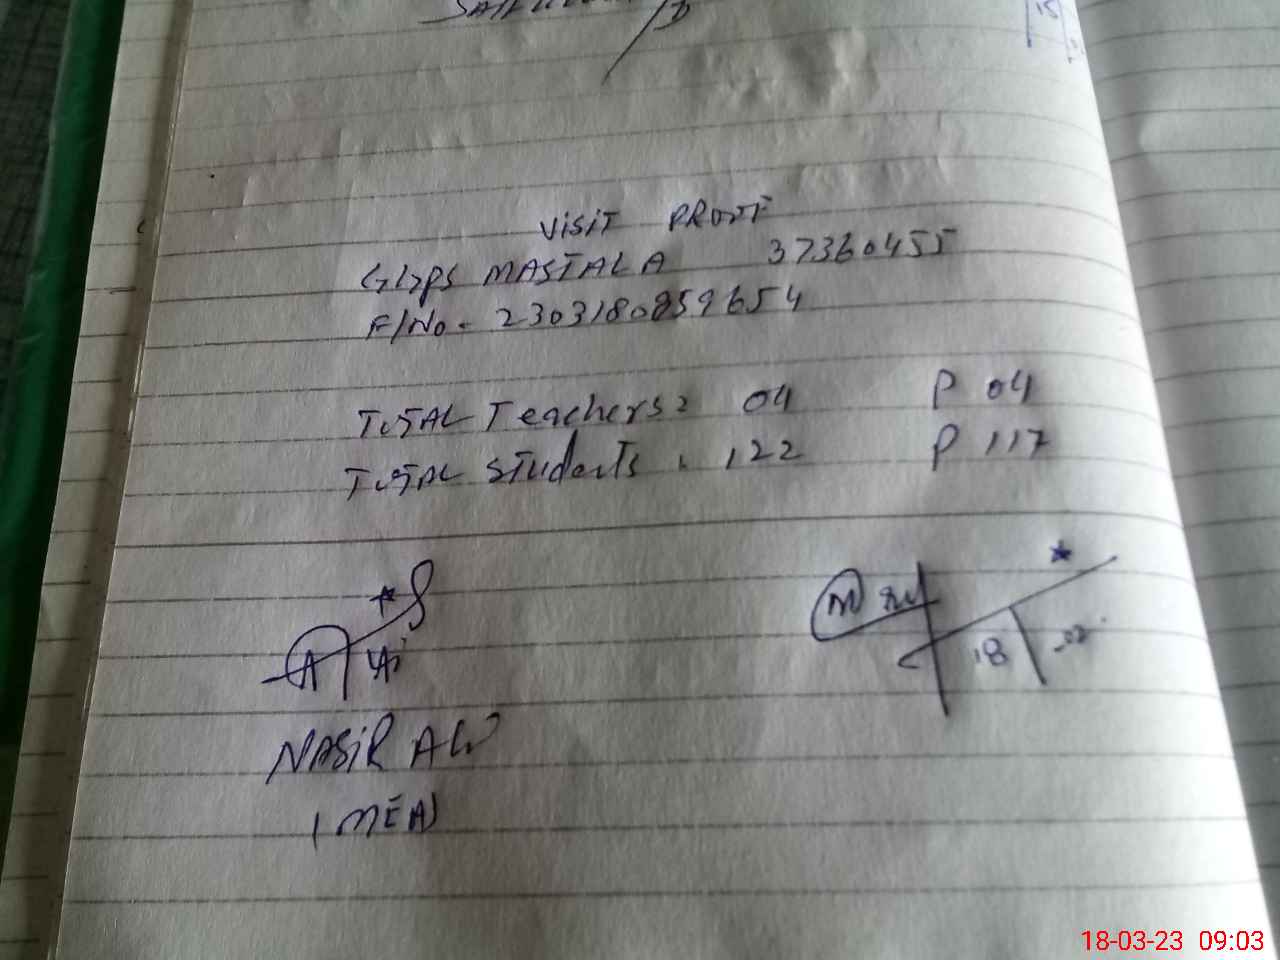 VISIT PROOF
GGPS MASTALA 37360455
F/No. 2303180859654
TOTAL Teachers: 04 P 04
TOTAL Students. 122 P 117
18
NASIR ALI
(MEA)
18-03-23 09:03